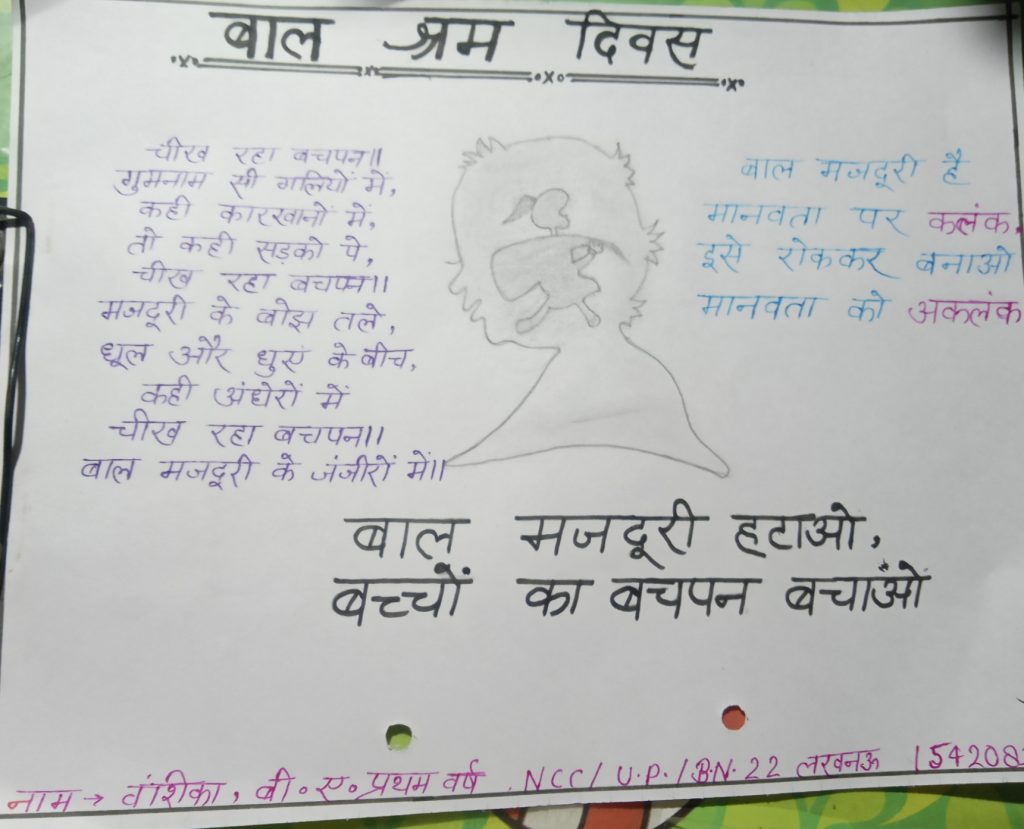 बाल श्रम दिवस
चीख रहा बचपन॥
गुमनाम सी गलियों में,
कही कारखानों में,
तो कही सड़को पे,
चीख रहा बचपन॥
मजदूरी के बोझ तले,
धूल और धुएं के बीच,
कही अंधेरों में
चीख रहा बचपन॥
बाल मजदूरी के जंजीरों में॥
बाल मजदूरी है
मानवता पर कलंक,
इसे रोककर बनाओ
मानवता को अकलंक
बाल मजदूरी हटाओ,
बच्चों का बचपन बचाओं
नाम → वंशिका, बी०ए० प्रथम वर्ष . NCC/ U.P./B.N. 22 लखनऊ 154208